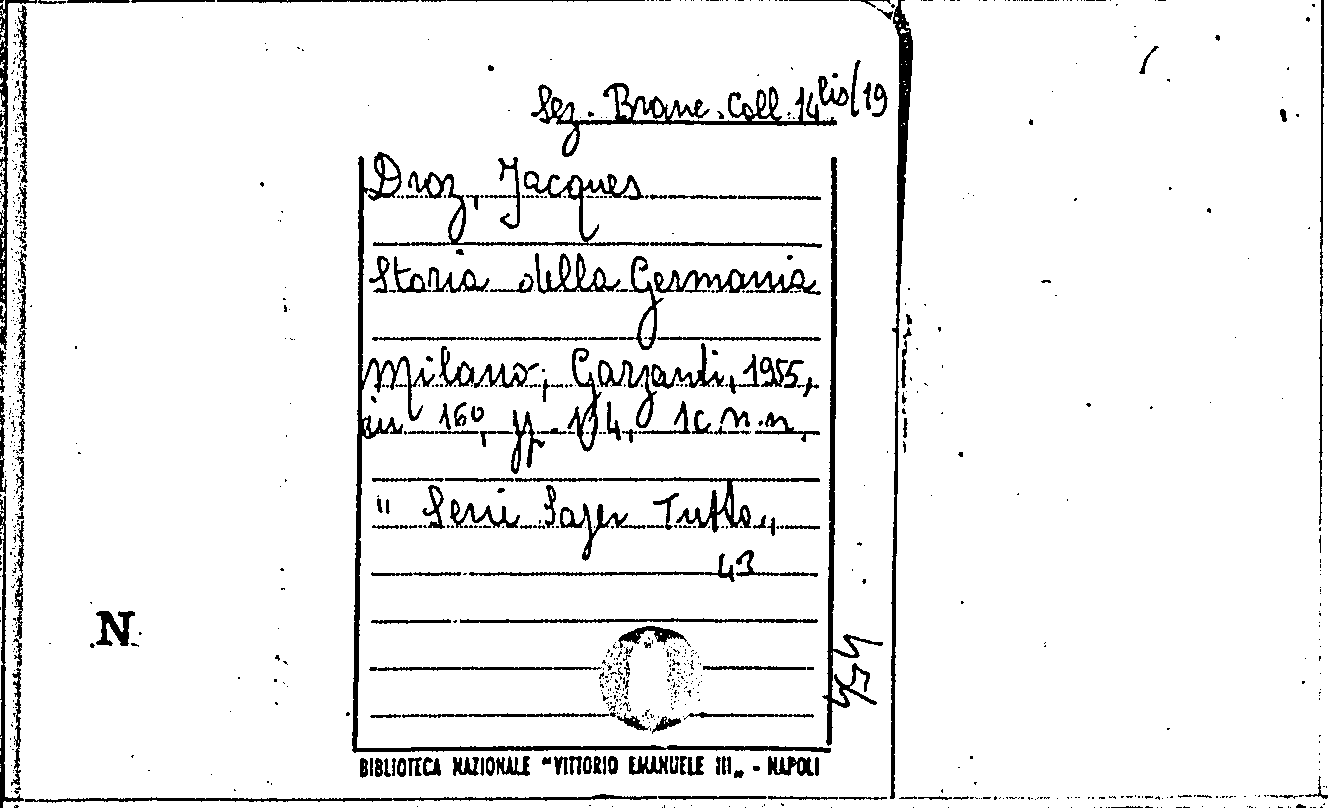 Sez. Branc. Coll. 14 bis/19
Droz, Jacques
Storia della Germania
Milano, Garzanti, 1955,
in 16º, pp. 134, 1 c. n. n.
" Serie Saper Tutto „
43
N
454
BIBLIOTECA NAZIONALE "VITTORIO EMANUELE III„ - NAPOLI